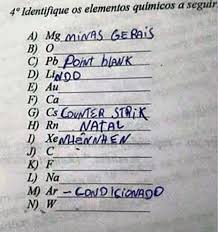 4º Identifique os elementos químicos a seguir
A) Mg MINAS GERAIS
B) O
C) Pb POINT BLANK
D) LiNDO
E) Au
F) Ca
G) Cs COUNTER STRIK
H) Rn NATAL
I) XeNHENNHEN
J) C
K) F
L) Na
M) Ar - CONDICIONADO
N) W